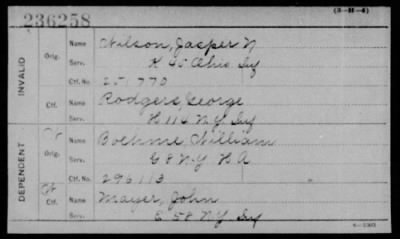 (3-H-4)
236258
INVALID
Orig. Name Wilson, Jasper N
Serv. K 45 Ohio Inf
Ctf. No. 251,770
Ctf. Name Rodgers, George
Serv. H 114 N.Y. Inf
DEPENDENT
Orig. Name Boehme, William
Serv. G 8 N.Y. H A
Ctf. No. 296113
Ctf. Name Mayer, John
Serv. E 58 N.Y. Inf